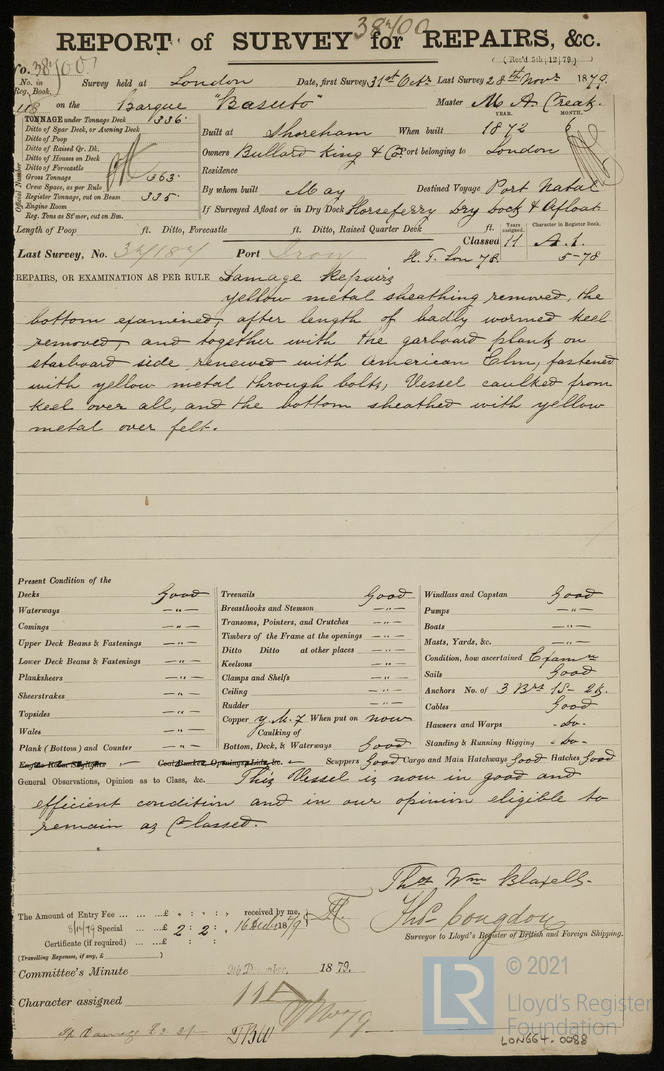 38700
REPORT of SURVEY for REPAIRS, &c.
(Rec'd 5th; 12; 79.)
No. 38700
No. in Reg. Book. Survey held at London Date, first Survey 31st Octr Last Survey 28th Novr 1879.
118 on the Barque "Basuto" Master M A Creak.
TONNAGE under Tonnage Deck 336.
Ditto of Spar Deck, or Awning Deck
Ditto of Poop
Ditto of Raised Qr. Dk.
Ditto of Houses on Deck
Ditto of Forecastle
Gross Tonnage 363.
Crew Space, as per Rule
Register Tonnage, cut on Beam 335.
Engine Room
Reg. Tons as St'mer, cut on Bm.
Official Number
YEAR. MONTH.
Built at Shoreham When built 1872 6
Owners Bullard King & Co. Port belonging to London
Residence
By whom built May Destined Voyage Port Natal
If Surveyed Afloat or in Dry Dock Horseferry Dry Dock & Afloat
Length of Poop ft. Ditto, Forecastle ft. Ditto, Raised Quarter Deck ft.
Years assigned. Character in Register Book.
Last Survey, No. Port Classed 11 A.1.
H. T. Lon 78. 5-78
REPAIRS, OR EXAMINATION AS PER RULE Damage Repairs
Yellow metal sheathing removed, the
bottom examined, after length of badly wormed keel
removed, and together with the garboard plank on
starboard side renewed with American Elm, fastened
with yellow metal through bolts, Vessel caulked from
keel over all, and the bottom sheathed with yellow
metal over felt.
Present Condition of the
Decks Good
Waterways — " —
Comings — " —
Upper Deck Beams & Fastenings — " —
Lower Deck Beams & Fastenings — " —
Planksheers — " —
Sheerstrakes — " —
Topsides — " —
Wales — " —
Plank (Bottom) and Counter — " —
Treenails Good
Breasthooks and Stemson — " —
Transoms, Pointers, and Crutches — " —
Timbers of the Frame at the openings — " —
Ditto Ditto at other places — " —
Keelsons — " —
Clamps and Shelfs — " —
Ceiling — " —
Rudder — " —
Copper Y.M.F When put on now
Caulking of
Bottom, Deck, & Waterways Good
Windlass and Capstan Good
Pumps — " —
Boats — " —
Masts, Yards, &c. — " —
Condition, how ascertained Examn
Sails Good
Anchors No. of 3 Brs 1S- 2K.
Cables Good
Hawsers and Warps - do -
Standing & Running Rigging - do -
Scuppers Good Cargo and Main Hatchways Good Hatches Good
General Observations, Opinion as to Class, &c. This Vessel is now in good and
efficient condition and in our opinion eligible to
remain as Classed.
Thos Wm Blaxell.
Thos. Congdon
Surveyor to Lloyd's Register of British and Foreign Shipping.
The Amount of Entry Fee ... £ " : " : " received by me,
8/12/79 Special ... £ 2 : 2 : " 16 Dec 1879
Certificate (if required) ... £ : :
(Travelling Expenses, if any, £ )
Committee's Minute 9th December, 1879.
Character assigned 11 A
© 2021
LR
Lloyd's Register
Foundation
LON664-0088